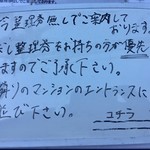 今整理券無しでご案内して
おります。
だし整理券をお持ちの方が優先
ますのでご了承下さい。
隣りのマンションのエントランスに
並び下さい。
ユチラ